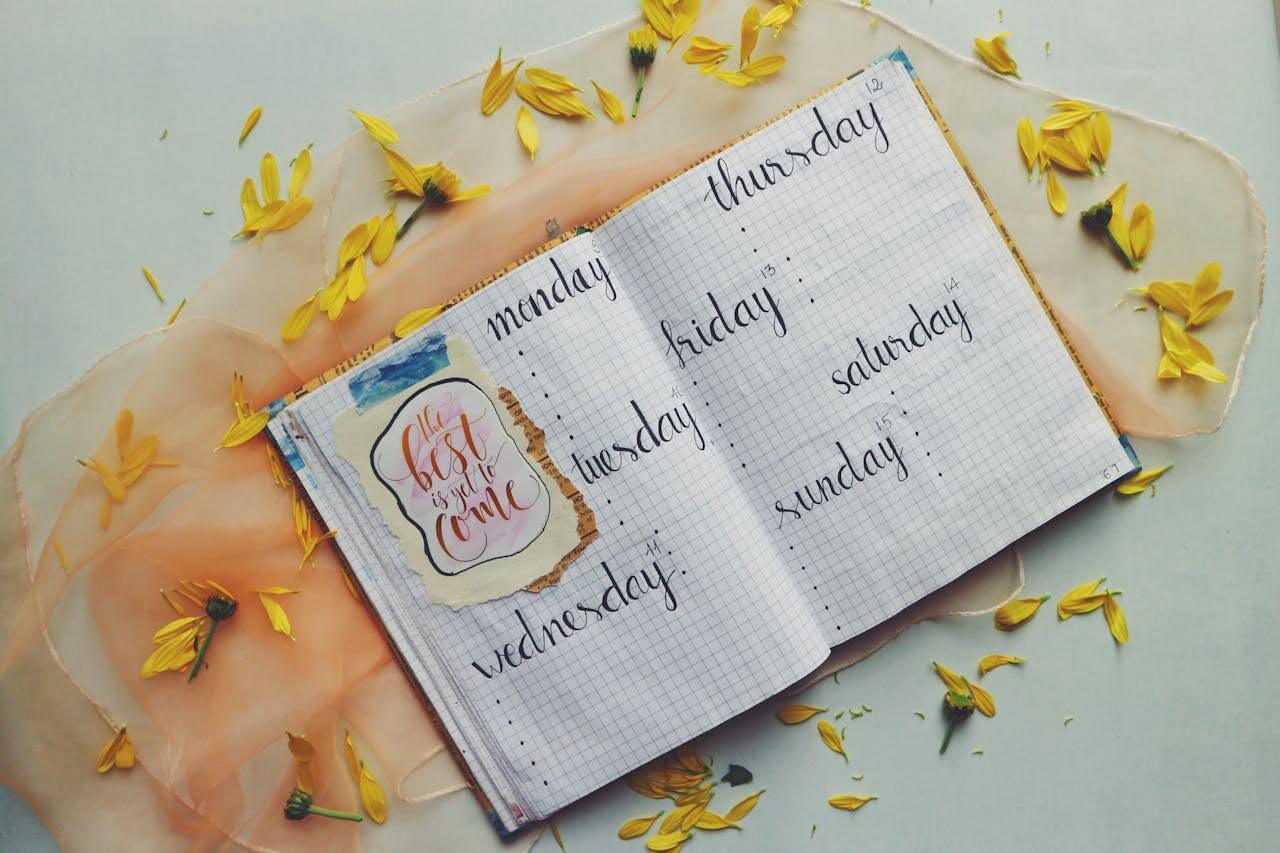 monday
9
the
best
is yet to
come
tuesday
10
wednesday
11
thursday
12
friday
13
saturday
14
sunday
15
67